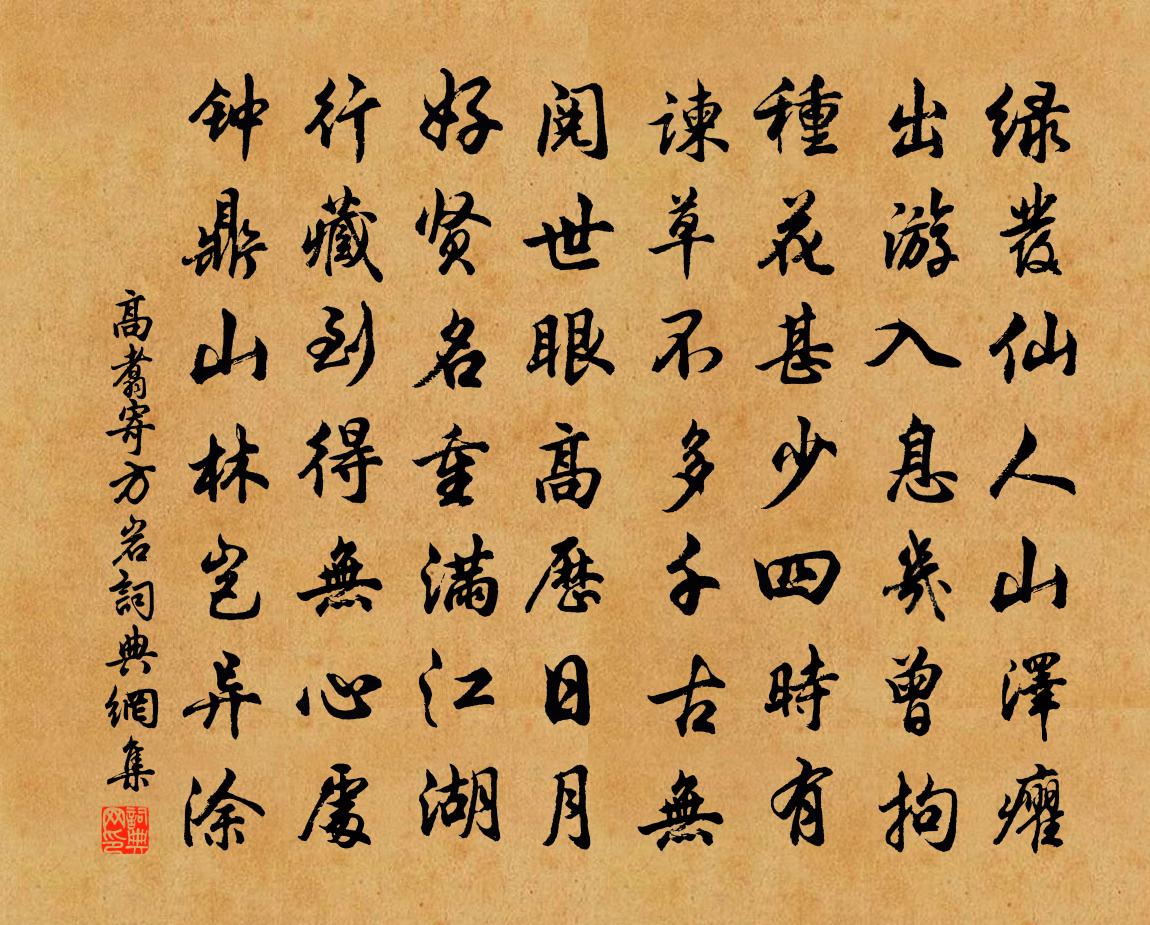 绿發仙人山澤癯
出游入息幾曾拘
種花甚少四時有
諫草不多千古無
阅世眼高歷日月
好贤名重满江湖
行藏到得無心處
钟鼎山林岂异涂
高翥寄方岩詞典網集
詞典网印